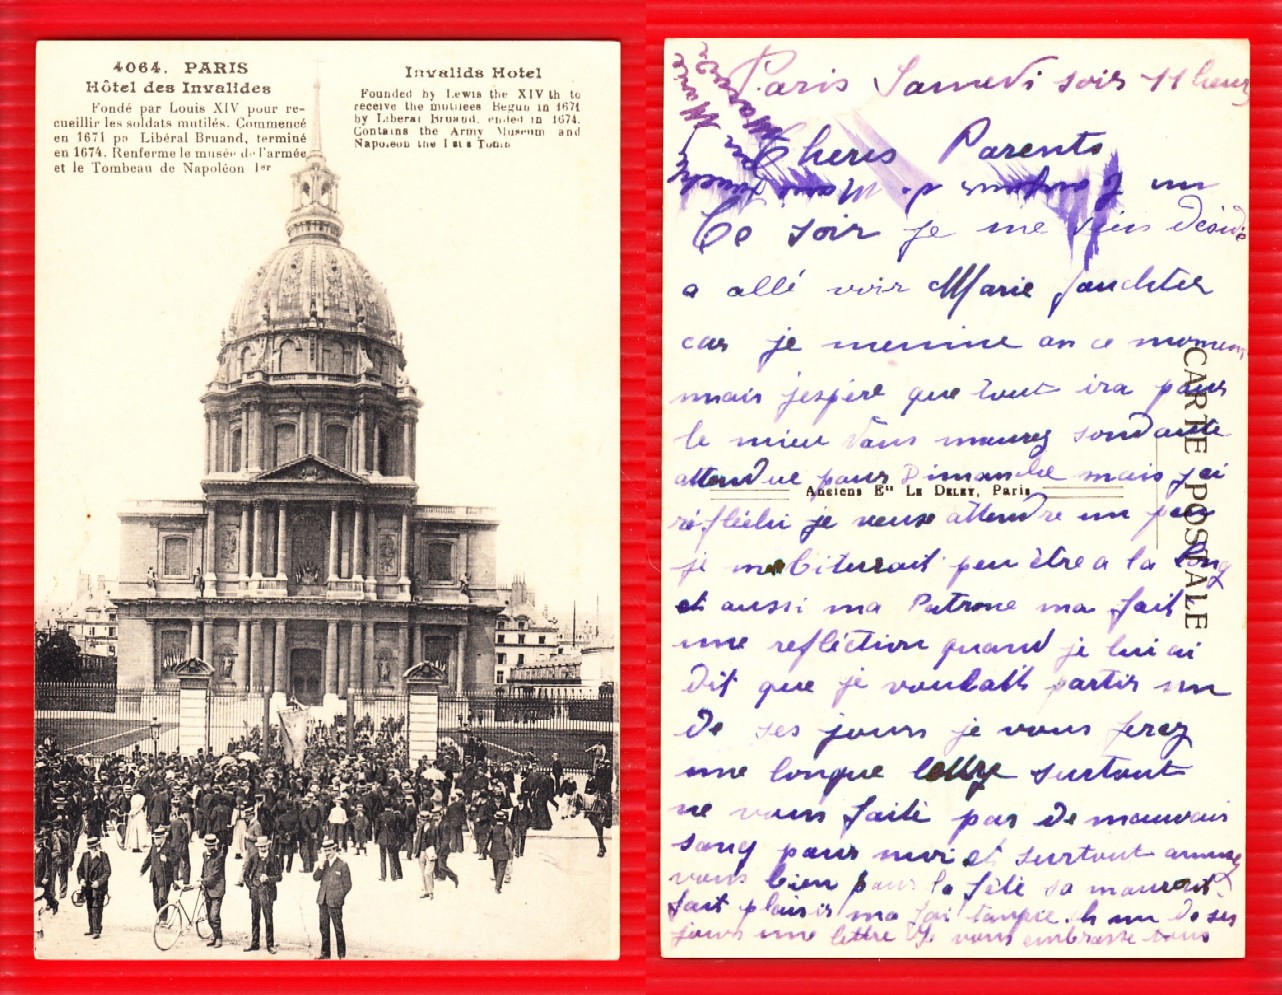 4064. PARIS
Hôtel des Invalides
Fondé par Louis XIV pour re-
cueillir les soldats mutilés. Commencé
en 1671 pa Libéral Bruand, terminé
en 1674. Renferme le musée de l'armée
et le Tombeau de Napoléon 1er
Invalids Hotel
Founded by Lewis the XIV th to
receive the mutilees Begun in 1671
by Liberal Bruand, ended in 1674.
Contains the Army Museum and
Napoleon the I st s Tomb
Paris Samedi soir 11 heur
Cheris Parents
Ce soir je me suis décidé
a allé voir Marie
car je mennuie an ce momen
mais jespère que tout ira pour
le mieu dans maurez sondoute
attendue pour Dimanche mais jai
réfléchi je veux attendre un peu
je mabiturait peu être a la long
et aussi ma Patrone ma fait
une refléction quand je lui ai
dit que je voulait partir un
de ses jours je vous ferez
une longue lettre surtout
ne vous faite pas de mauvais
sang pour moi et surtout amusez
vous bien pour la fête sa maurait
fait plaisir ma foi tanpie. h un de ses
jours une lettre Je vous embrasse tous
CARTE POSTALE
Anciens Etts LE DELEY, Paris
Marie